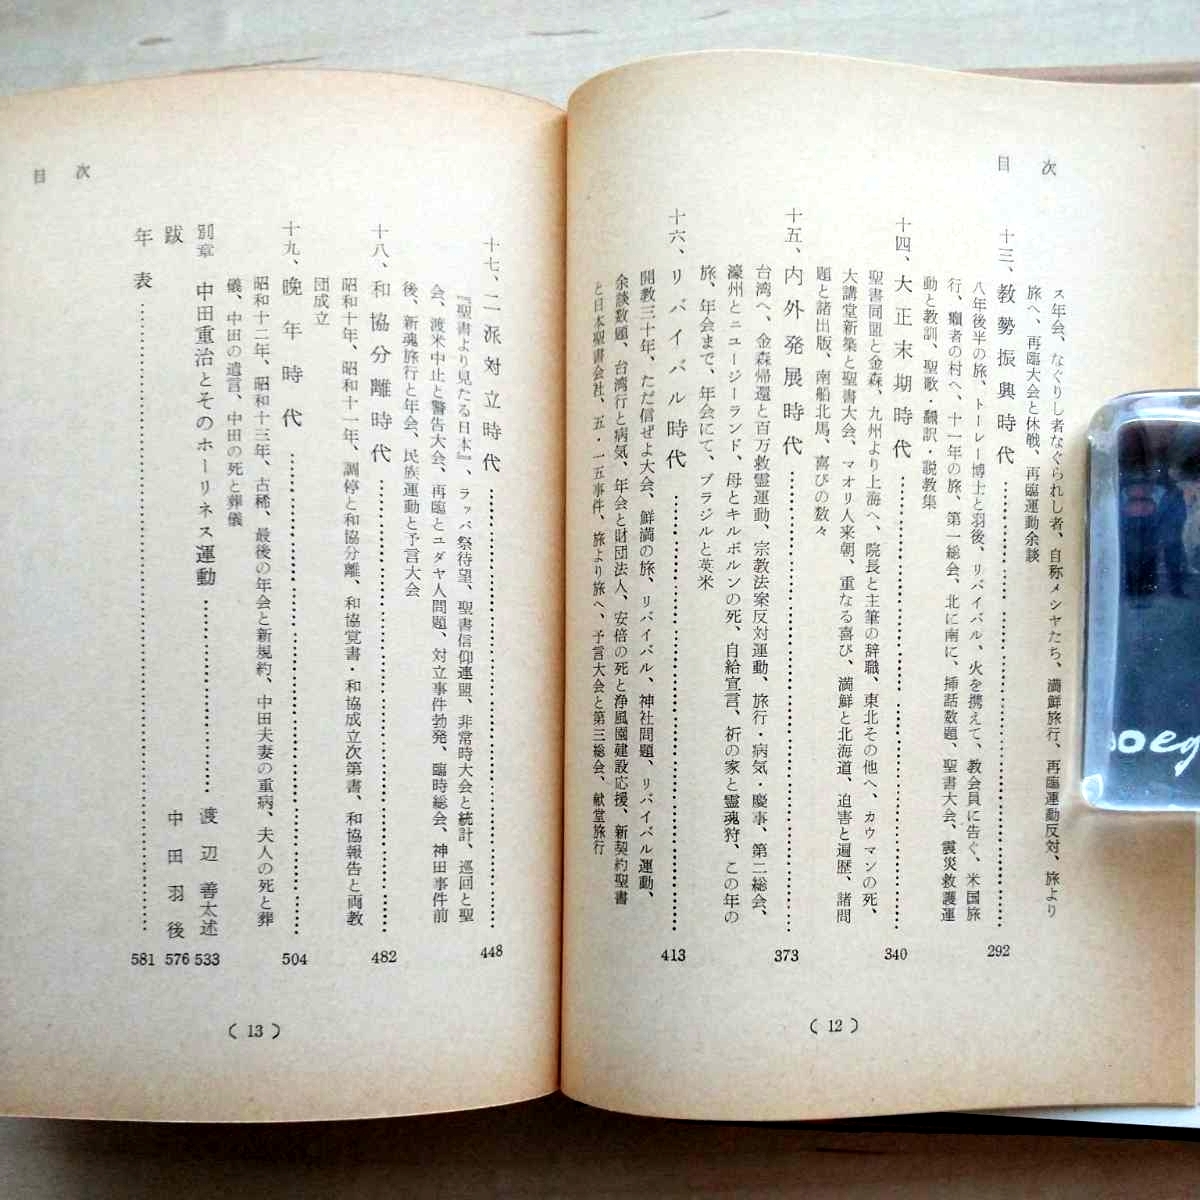 目次
ス年会、なぐりし者なぐられし者、自称メシヤたち、満鮮旅行、再臨運動反対、旅より
旅へ、再臨大会と休戦、再臨運動余談
十三、教勢振興時代……292
八年後半の旅、トーレー博士と羽後、リバイバル、火を携えて、教会員に告ぐ、米国旅
行、癩者の村へ、十一年の旅、第一総会、北に南に、挿話数題、聖書大会、震災救護運
動と教訓、聖歌・翻訳・説教集
十四、大正末期時代……340
聖書同盟と金森、九州より上海へ、院長と主筆の辞職、東北その他へ、カウマンの死、
大講堂新築と聖書大会、マオリ人来朝、重なる喜び、満鮮と北海道、迫害と遍歴、諸問
題と諸出版、南船北馬、喜びの数々
十五、内外発展時代……373
台湾へ、金森帰還と百万救霊運動、宗教法案反対運動、旅行・病気・慶事、第二総会、
濠州とニュージーランド、母とキルボルンの死、自給宣言、祈の家と霊魂狩、この年の
旅、年会まで、年会にて、ブラジルと英米
十六、リバイバル時代……413
開教三十年、ただ信ぜよ大会、鮮満の旅、リバイバル、神社問題、リバイバル運動、
余談数題、台湾行と病気、年会と財団法人、安倍の死と浄風園建設応援、新契約聖書
と日本聖書会社、五・一五事件、旅より旅へ、予言大会と第三総会、献堂旅行
(12)
目次
十七、二派対立時代……448
『聖書より見たる日本』、ラッパ祭待望、聖書信仰連盟、非常時大会と統計、巡回と聖
会、渡米中止と警告大会、再臨とユダヤ人問題、対立事件勃発、臨時総会、神田事件前
後、新魂旅行と年会、民族運動と予言大会
十八、和協分離時代……482
昭和十年、昭和十一年、調停と和協分離、和協覚書・和協成立次第書、和協報告と両教
団成立
十九、晩年時代……504
昭和十二年、昭和十三年、古稀、最後の年会と新規約、中田夫妻の重病、夫人の死と葬
儀、中田の遺言、中田の死と葬儀
別章 中田重治とそのホーリネス運動……渡辺善太述 533
跋 中田羽後 576
年表……581
(13)